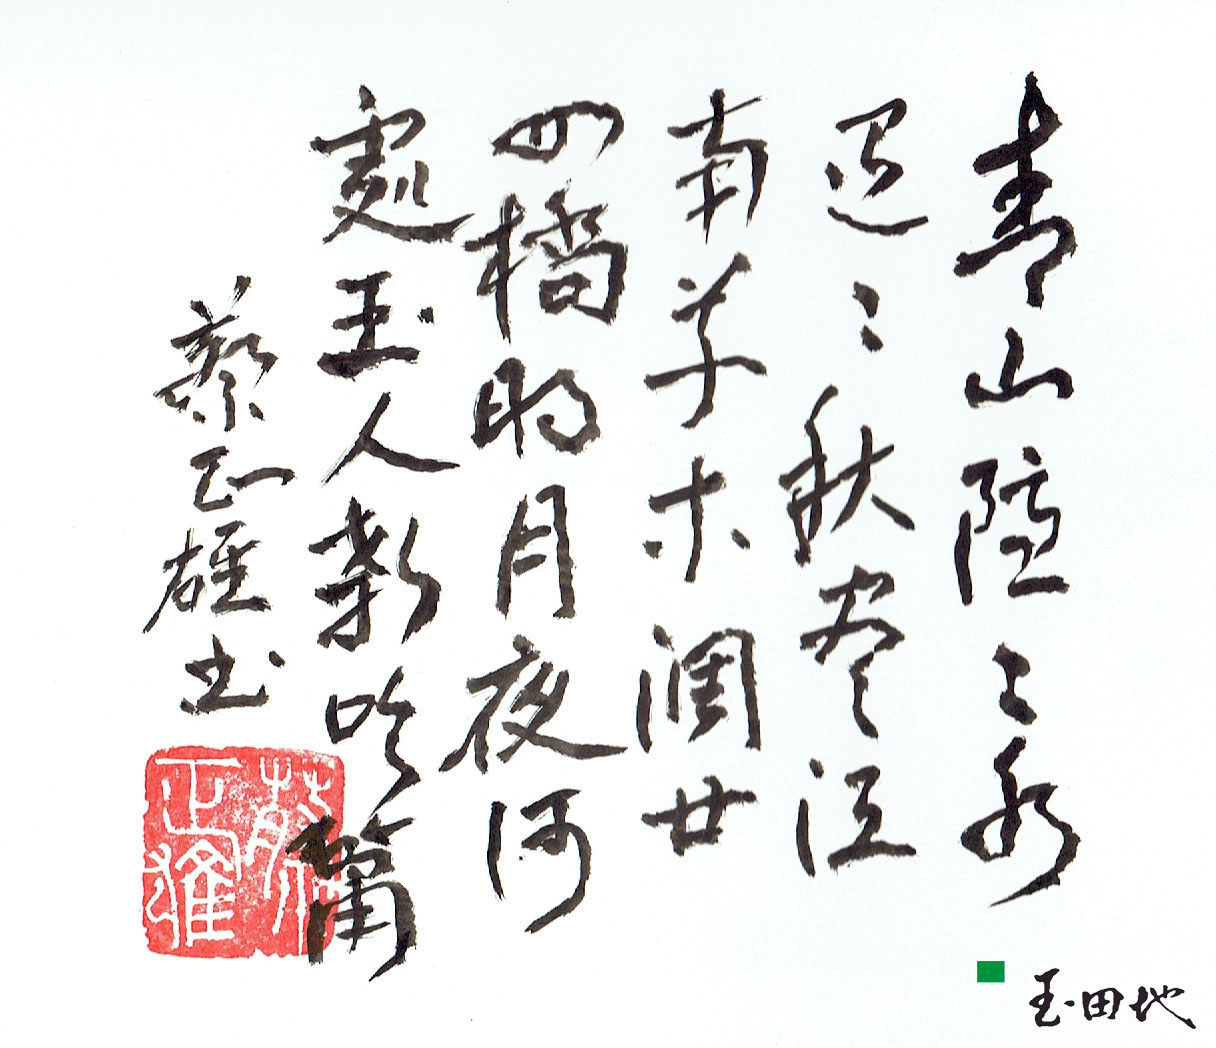 青山隱〻水
迢〻秋盡江
南草木凋廿
四橋明月夜何
處玉人教吹簫
蔡正雄书
蔡
正雄
玉田地